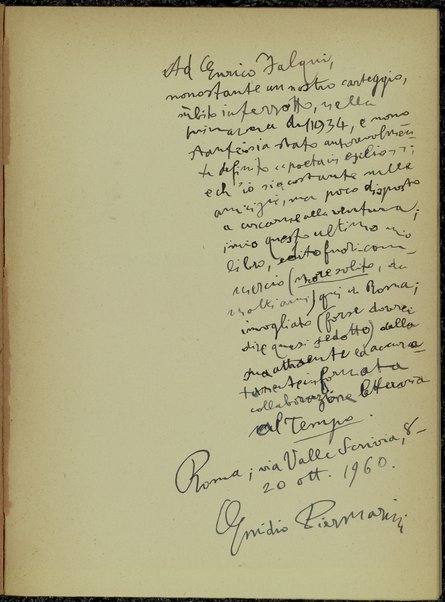 Ad Enrico Falqui,
nonostante un nostro carteggio,
subito interrotto, nella
primavera del 1934, e nono
stante io sia stato autorevolmen
te definito «poeta in esilio»;
e ch'io sia costante nelle
amicizie, ma poco disposto
a cercarne alla ventura;
invio questo ultimo mio
libro, edito fuori com
mercio (more solito, da
molti anni) qui in Roma;
invogliato (forse dovrei
dire quasi sedotto) dalla
sua attraente ed accura
tamente informata
collaborazione letteraria
al Tempo.
Roma; via Valle Scrivia, 8-
20 ott. 1960.
Emidio Piermarini